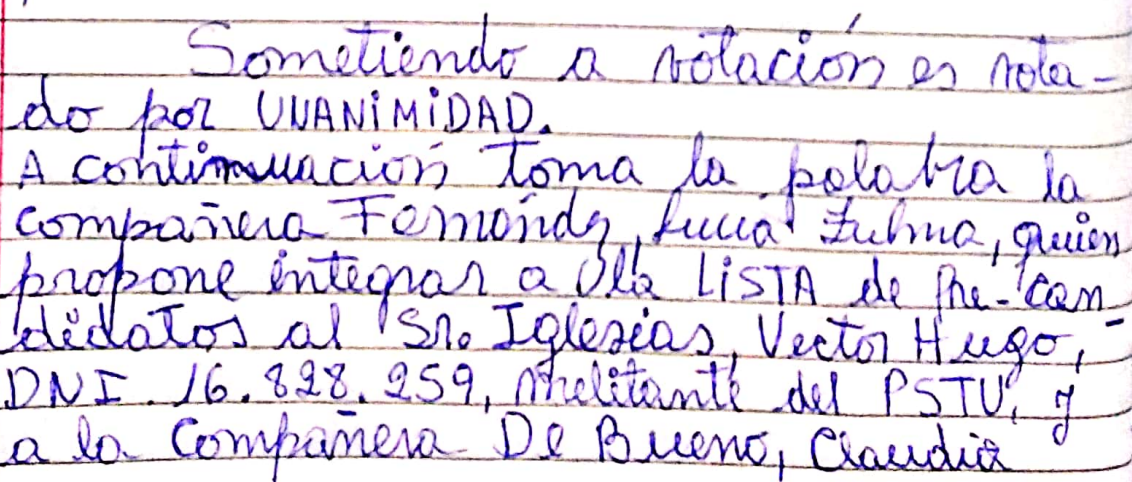 Sometiendo a votación es vota-
do por UNANiMiDAD.
A continuación toma la palabra la
compañera Fernández, Lucía Zulma, quien
propone integrar a la LiSTA de Pre-can
didatos al Sr. Iglesias, Víctor Hugo,-
DNI. 16.828.259, militante del PSTU, y
a la Compañera De Bueno, Claudia